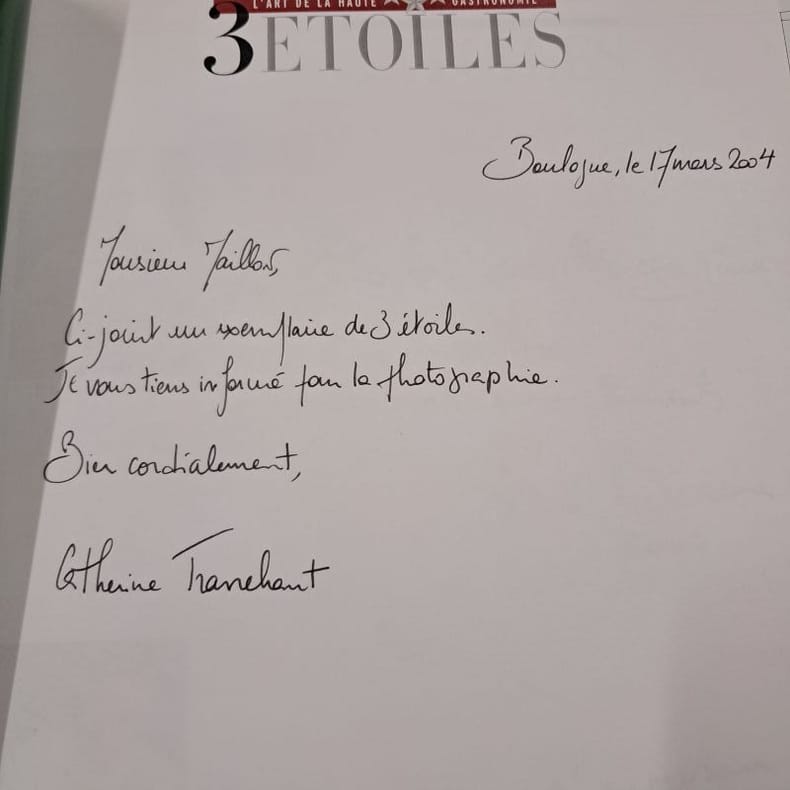 L'ART DE LA HAUTE GASTRONOMIE
3 ETOILES
Boulogne, le 17 mars 2004
Monsieur Maillot,
Ci-joint un exemplaire de 3 étoiles.
Je vous tiens informé pour la photographie.
Bien cordialement,
Catherine Tranchant